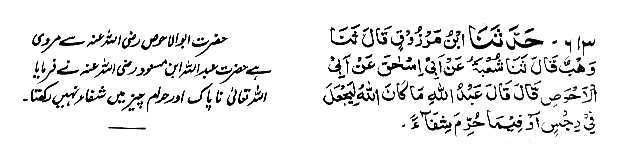 ۶۱۳۔ حَدَّثَنَا ابْنُ مَرْزُوْقٍ قَالَ ثَنَا
وَهْبٌ قَالَ ثَنَا شُعْبَةُ عَنْ اَبِيْ اِسْحٰقَ عَنْ اَبِي
الْاَحْوَصِ قَالَ قَالَ عَبْدُ اللهِ مَا كَانَ اللهُ لِيَجْعَلَ
فِيْ رِجْسٍ اَوْ فِيْمَا حُرِّمَ شِفَآءً۔
حضرت ابوالاحوص رضی اللہ عنہ سے مروی
ہے حضرت عبداللہ ابن مسعود رضی اللہ عنہ نے فرمایا
اللہ تعالیٰ ناپاک اور حرام چیز میں شفاء نہیں رکھتا۔